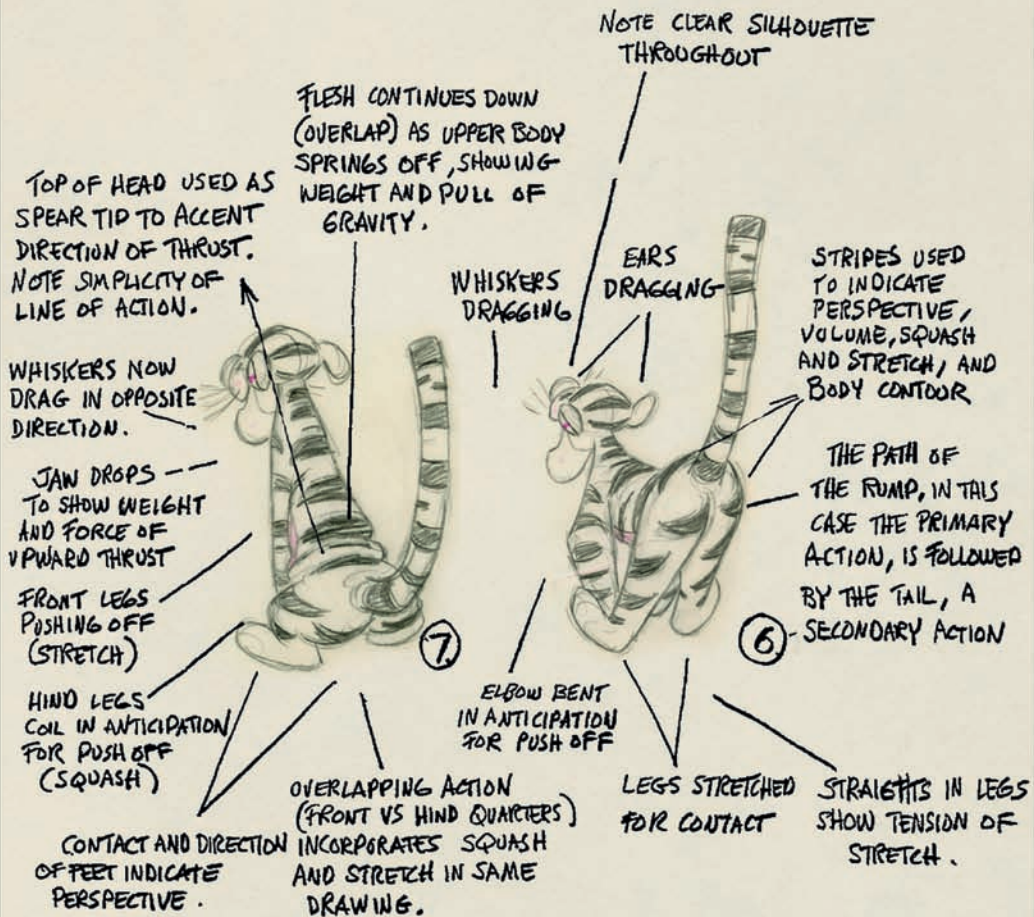 NOTE CLEAR SILHOUETTE
THROUGHOUT
FLESH CONTINUES DOWN
(OVERLAP) AS UPPER BODY
SPRINGS OFF, SHOWING
WEIGHT AND PULL OF
GRAVITY.
TOP OF HEAD USED AS
SPEAR TIP TO ACCENT
DIRECTION OF THRUST.
NOTE SIMPLICITY OF
LINE OF ACTION.
WHISKERS
DRAGGING
EARS
DRAGGING
STRIPES USED
TO INDICATE
PERSPECTIVE,
VOLUME, SQUASH
AND STRETCH, AND
BODY CONTOUR
WHISKERS NOW
DRAG IN OPPOSITE
DIRECTION.
JAW DROPS
TO SHOW WEIGHT
AND FORCE OF
UPWARD THRUST
THE PATH OF
THE RUMP, IN THIS
CASE THE PRIMARY
ACTION, IS FOLLOWED
BY THE TAIL, A
SECONDARY ACTION
FRONT LEGS
PUSHING OFF
(STRETCH)
7
6
HIND LEGS
COIL IN ANTICIPATION
FOR PUSH OFF
(SQUASH)
ELBOW BENT
IN ANTICIPATION
FOR PUSH OFF
CONTACT AND DIRECTION
OF FEET INDICATE
PERSPECTIVE.
OVERLAPPING ACTION
(FRONT VS HIND QUARTERS)
INCORPORATES SQUASH
AND STRETCH IN SAME
DRAWING.
LEGS STRETCHED
FOR CONTACT
STRAIGHTS IN LEGS
SHOW TENSION OF
STRETCH.